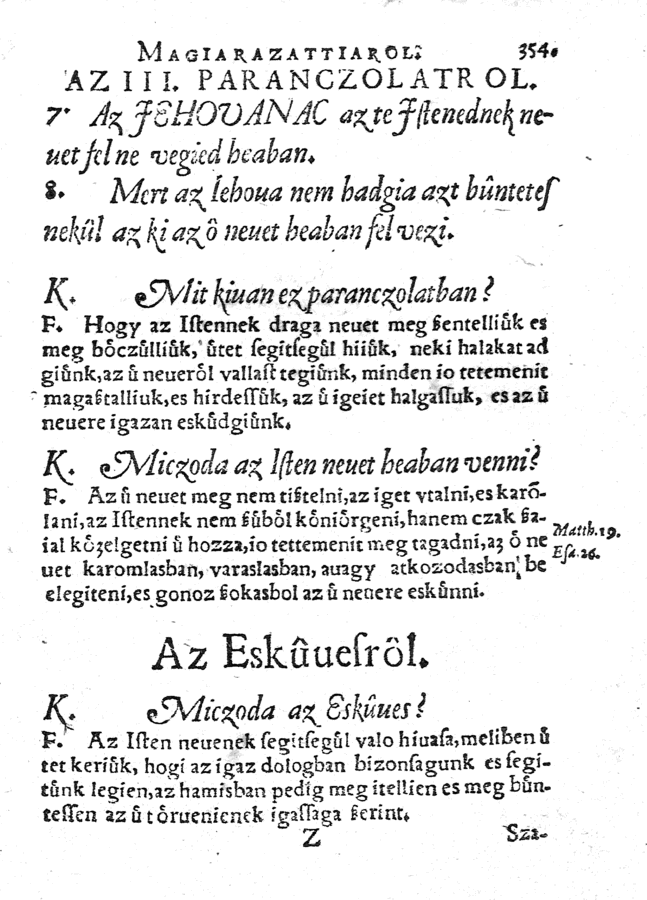 MAGIARAZATTIAROL: 354.
AZ III. PARANCZOLATROL.
7. Az JEHOVANAC az te Iſtenednek ne-
uet fel ne vegied heaban.
8. Mert az Iehoua nem hadgia azt bûntetes
nekûl az ki az ô neuet heaban fel vezi.
K. Mit kiuan ez paranczolatban?
F. Hogy az Iſtennek draga neuet meg ßentelliûk es
meg bôczûlliûk, ûtet ſegitſegûl hiiûk, neki halakat ad
giûnk, az û neuerôl vallaſt tegiûnk, minden io tetemenit
magaßtalliuk, es hirdeſſûk, az û igeiet halgaſſuk, es az û
neuere igazan eskûdgiûnk.
K. Miczoda az Iſten neuet heaban venni?
F. Az û neuet meg nem tißtelni, az iget vtalni, es karô-
lani, az Iſtennek nem ßûbôl kôniôrgeni, hanem czak ßa-
ial kôzelgetni û hozza, io tettemenit meg tagadni, az ô ne
uet karomlasban, varaslasban, auagy atkozodasban, be
elegiteni, es gonoz ßokasbol az û neuere eskûnni.
Matth. 19.
Eſa. 26.
Az Eskûueſrôl.
K. Miczoda az Eskûues?
F. Az Iſten neuenek ſegitſegûl valo hiuaſa, melißen û
tet keriûk, hogi az igaz dologban bizonſagunk es ſegi-
tûnk legien, az hamisban pedig meg itellien es meg bûn-
teſſen az û tôruenienek igaſſaga ßerint.
Z Sza-